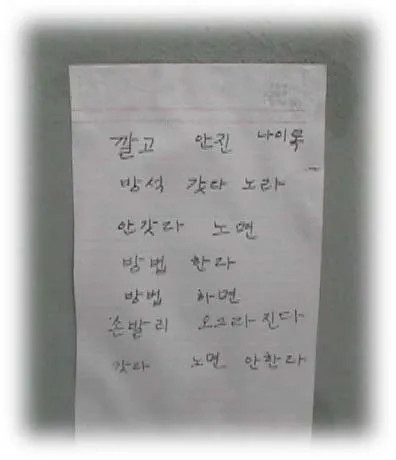 깔고 안진 나이롱
방석 갓다 노라
안갓다 노면
방법 한다
방법 하면
손발리 오그라진다
갓다 노면 안한다